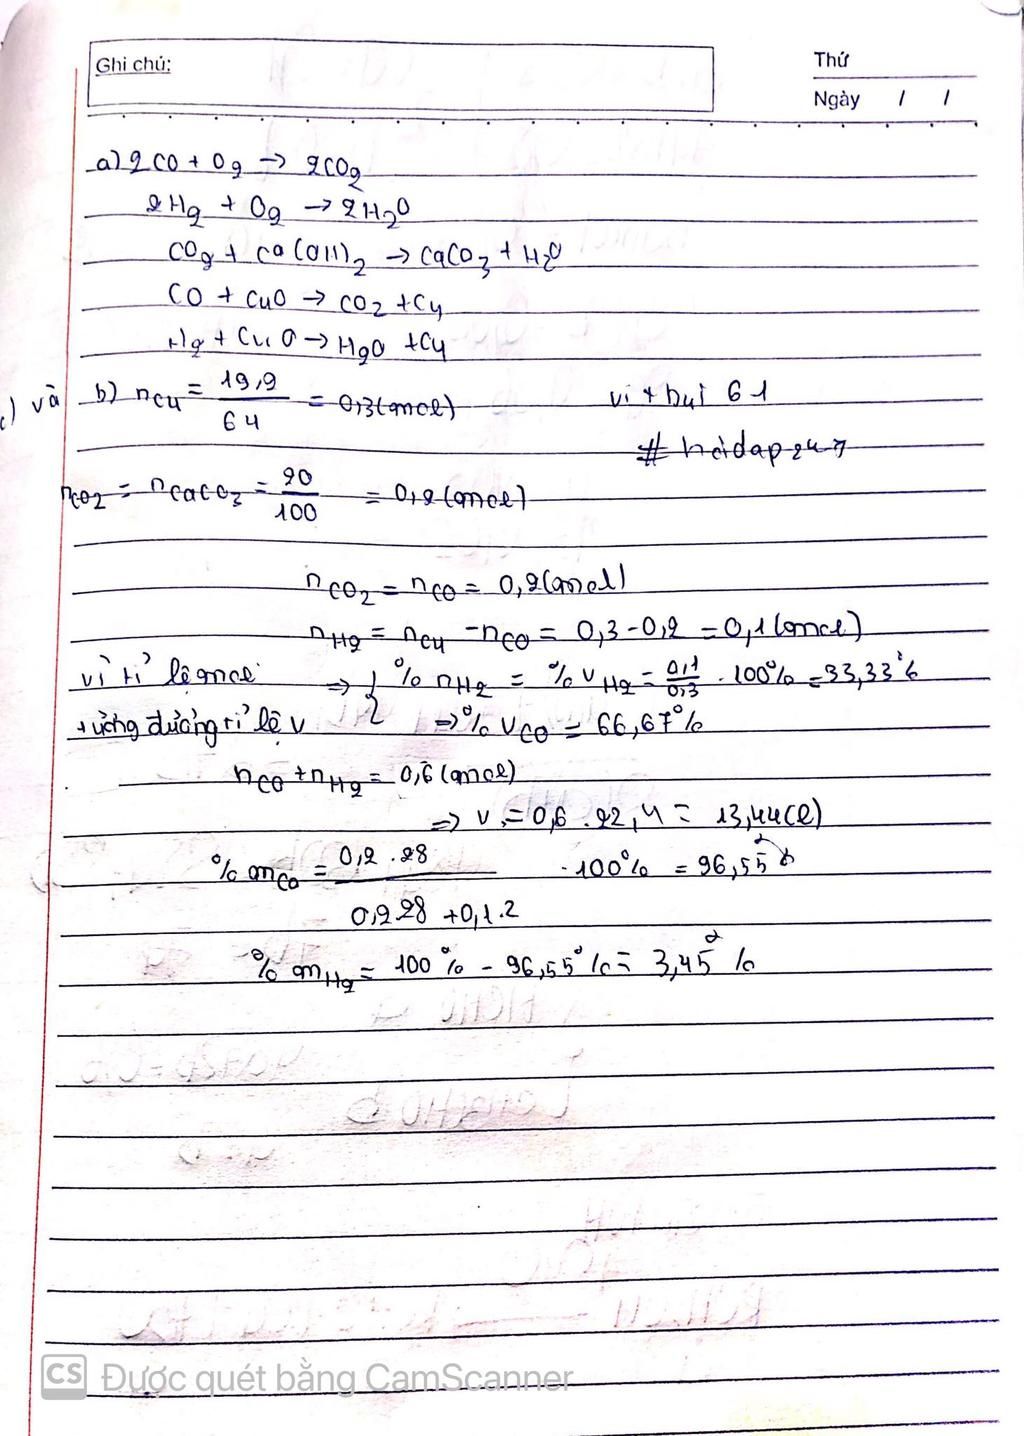 Ghi chú:
Thứ
Ngày / /
a) 2CO + O2 → 2CO2
2H2 + O2 → 2H2O
CO2 + Ca(OH)2 → CaCO3 + H2O
CO + CuO → CO2 + Cu
H2 + CuO → H2O + Cu
c) và b) nCu = 19,2/64 = 0,3(mol)
vi + bui 61
# hoidap247
nCO2 = nCaCO3 = 20/100 = 0,2(mol)
nCO2 = nCO = 0,2(mol)
nH2 = nCu - nCO = 0,3 - 0,2 = 0,1(mol)
vì tỉ lệ mol ⇒ { % nH2 = % VH2 = 0,1/0,3 . 100% = 33,33%
tương đương tỉ lệ V ⇒ % VCO = 66,67%
nCO + nH2 = 0,6(mol)
⇒ V = 0,6 . 22,4 = 13,44(l)
% mCO = 0,2 . 28 / 0,2.28 + 0,1.2 . 100% = 96,55%
% mH2 = 100% - 96,55% = 3,45%
CS Được quét bằng CamScanner